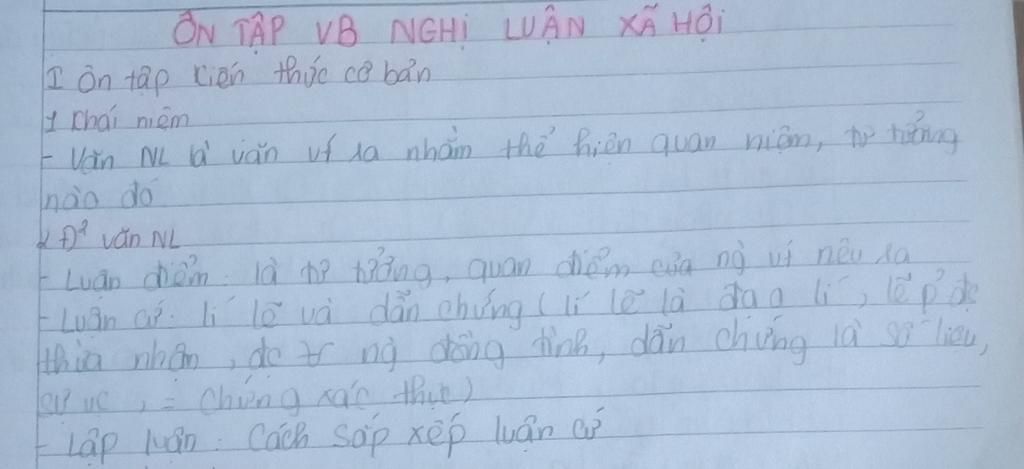 ÔN TẬP VB NGHỊ LUẬN XÃ HỘI
I Ôn tập kiến thức cơ bản
1 Khái niệm
- Văn NL là văn vf ra nhằm thể hiện quan niệm, tư tưởng
nào đó
2 Đ² văn NL
- Luận điểm: là tư tưởng, quan điểm của ng` vf nêu ra
- Luận cứ: lí lẽ và dẫn chứng (lí lẽ là đạo lí, lẽ p² đc
thừa nhận, đc ng` đồng tình, dẫn chứng là số liệu,
= chứng xác thực)
- Lập luận: Cách sắp xếp luận cứ